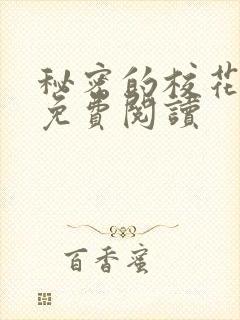 秘密的校花
免費閱讀
百香蜜